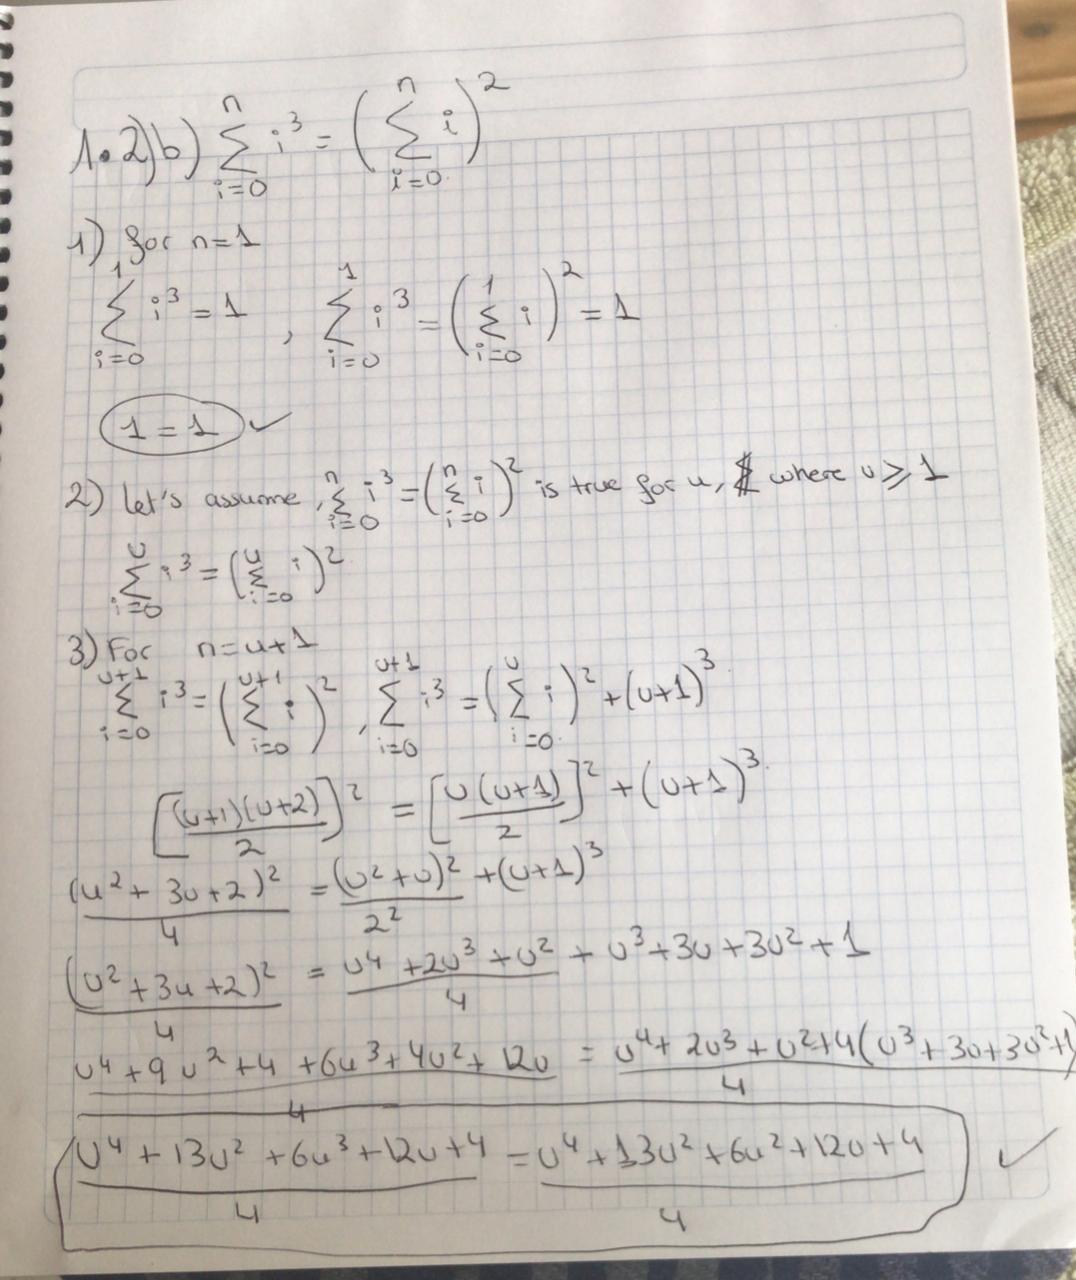 1.2)b) \sum_{i=0}^{n} i^3 = (\sum_{i=0}^{n} i)^2
1) for n=1
\sum_{i=0}^{1} i^3 = 1 , \sum_{i=0}^{1} i^3 = (\sum_{i=0}^{1} i)^2 = 1
1 = 1 ✓
2) let's assume, \sum_{i=0}^{n} i^3 = (\sum_{i=0}^{n} i)^2 is true for u, where u ⩾ 1
\sum_{i=0}^{u} i^3 = (\sum_{i=0}^{u} i)^2
3) For n=u+1
\sum_{i=0}^{u+1} i^3 = (\sum_{i=0}^{u+1} i)^2 , \sum_{i=0}^{u+1} i^3 = (\sum_{i=0}^{u} i)^2 + (u+1)^3
[\frac{(u+1)(u+2)}{2}]^2 = [\frac{u(u+1)}{2}]^2 + (u+1)^3
\frac{(u^2 + 3u + 2)^2}{4} = \frac{(u^2 + u)^2}{2^2} + (u+1)^3
\frac{(u^2 + 3u + 2)^2}{4} = \frac{u^4 + 2u^3 + u^2}{4} + u^3 + 3u + 3u^2 + 1
\frac{u^4 + 9u^2 + 4 + 6u^3 + 4u^2 + 12u}{4} = \frac{u^4 + 2u^3 + u^2 + 4(u^3 + 3u + 3u^2 + 1)}{4}
\frac{u^4 + 13u^2 + 6u^3 + 12u + 4}{4} = \frac{u^4 + 13u^2 + 6u^2 + 12u + 4}{4} ✓